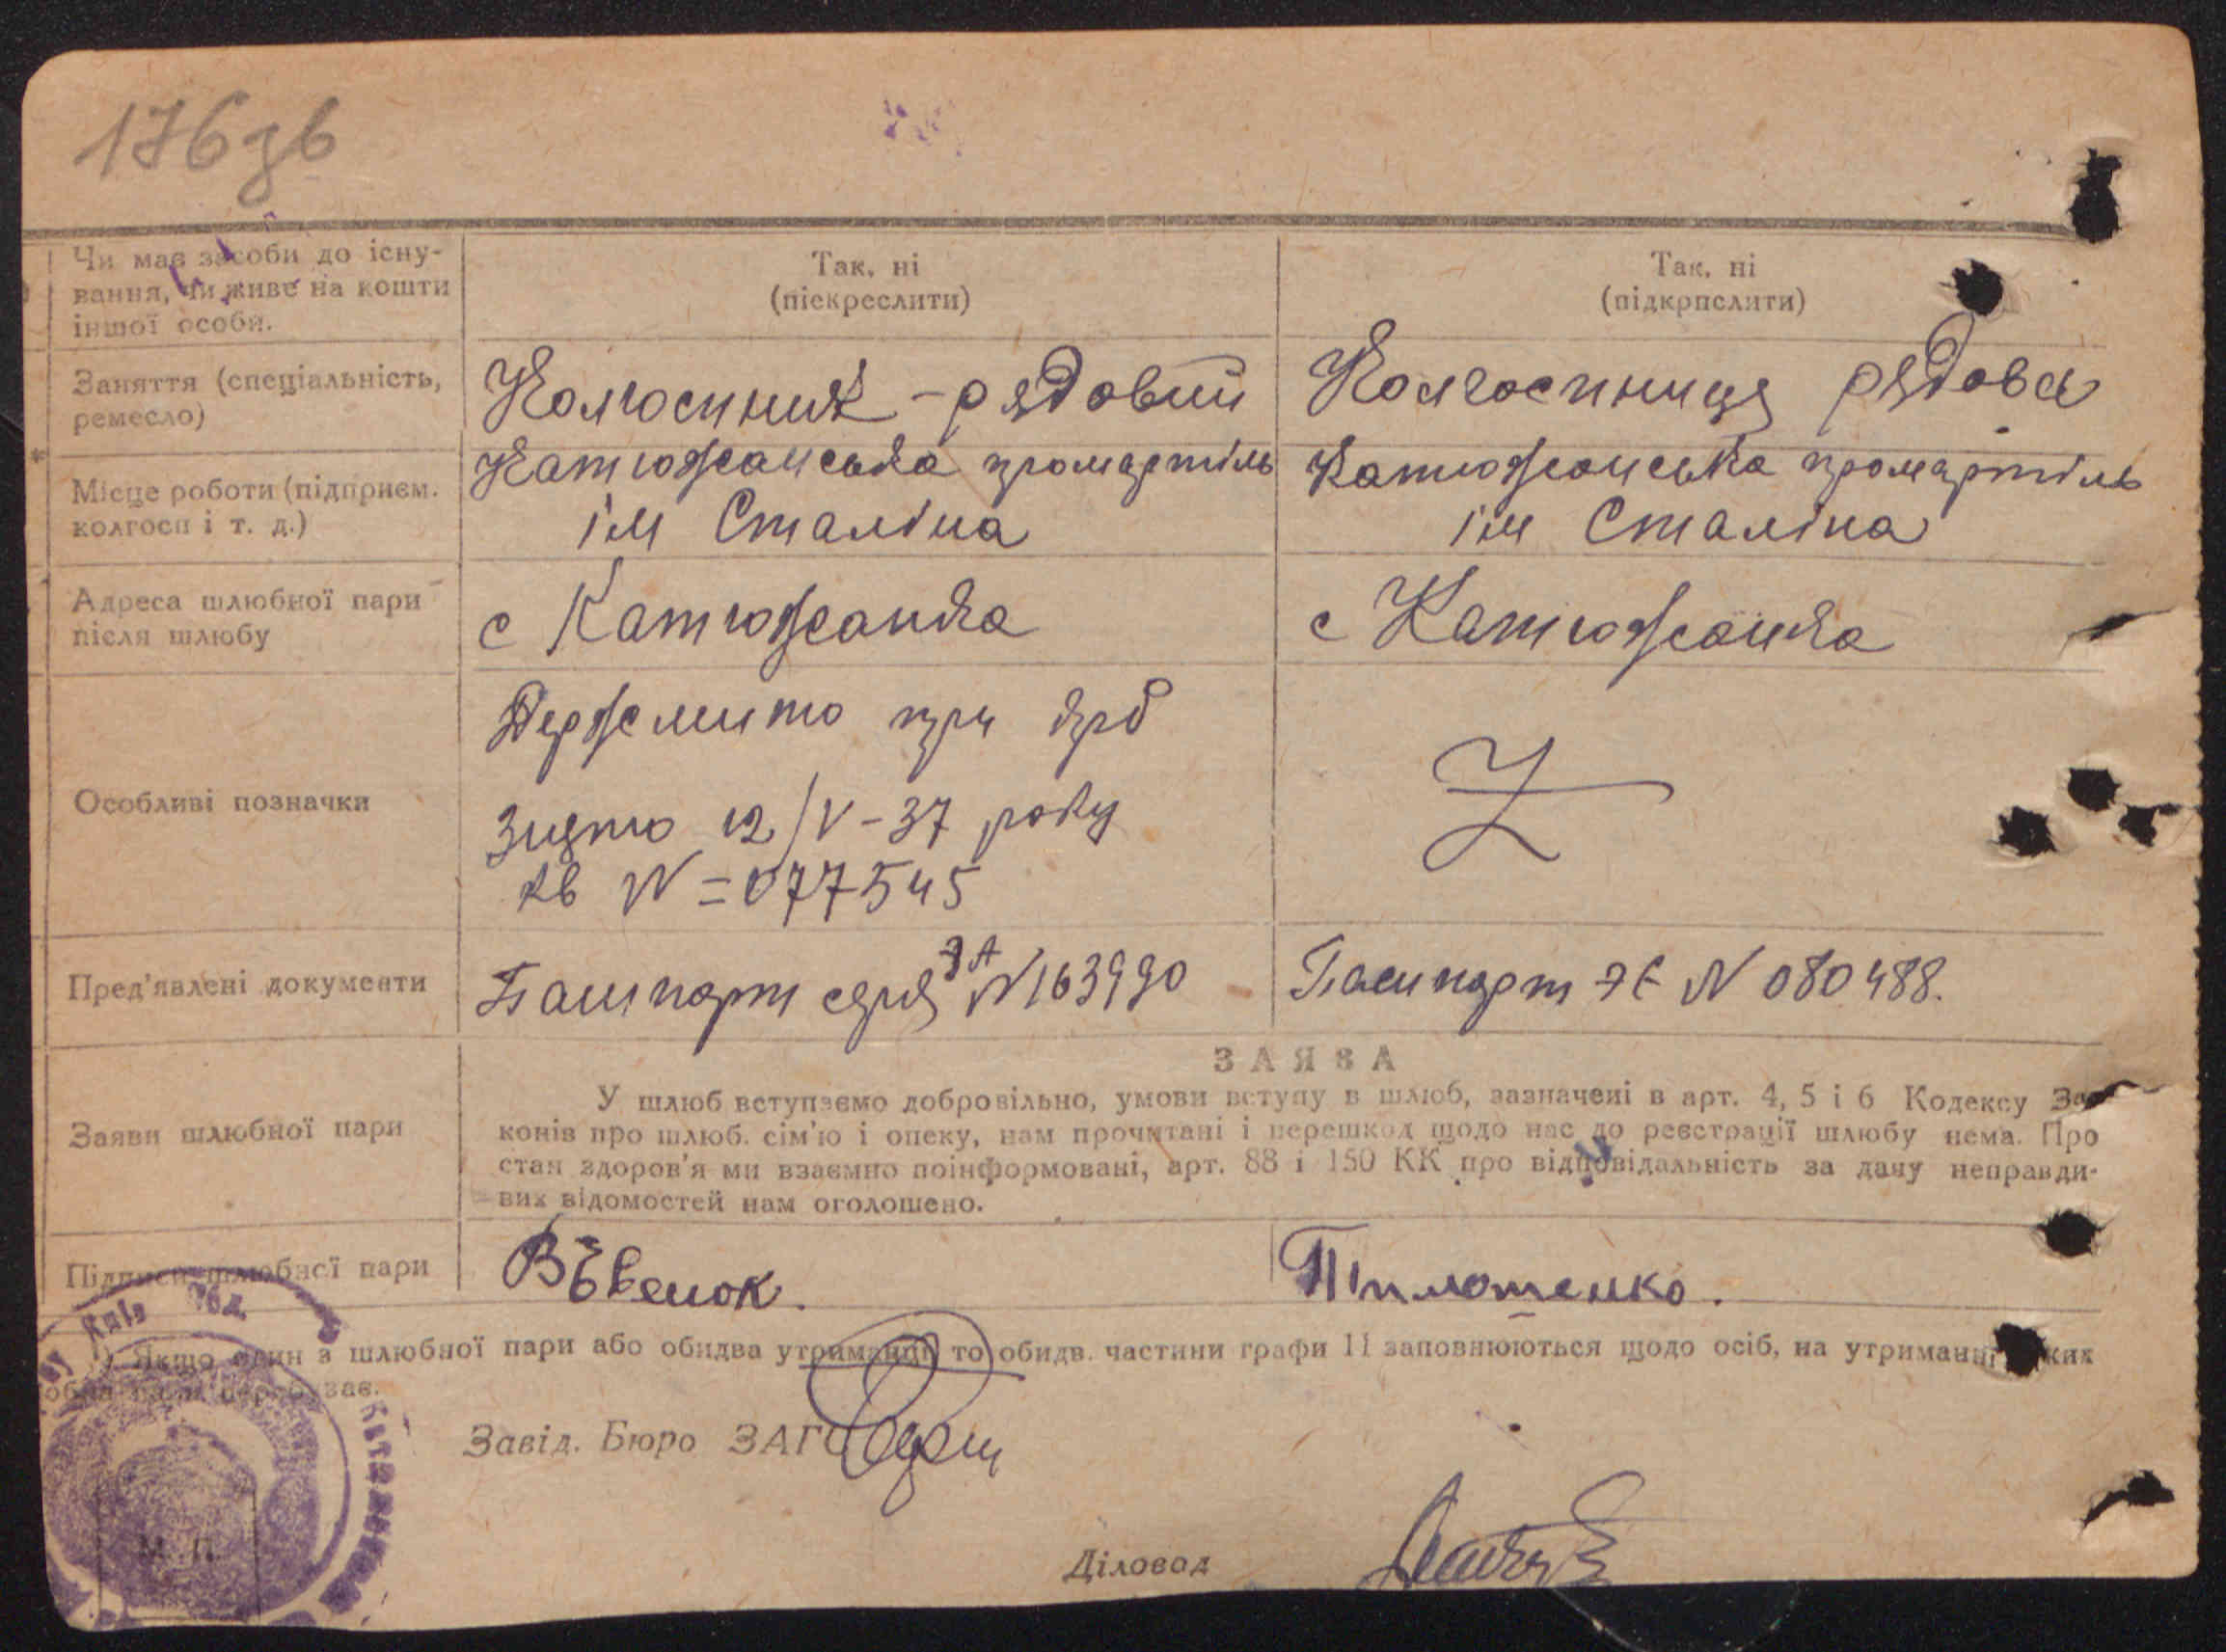 176зв
Чи має засоби до існу-
вання, чи живе на кошти
іншої особи.
Так, ні
(піекреслити)
Так, ні
(підкрпслити)
Заняття (спеціальність,
ремесло)
Колгоспник - рядовий
Колгоспниця рядова
Місце роботи (підприєм.
колгосп і т. д.)
Катюжанська промартіль
ім Сталіна
Катюжанська промартіль
ім Сталіна
Адреса шлюбної пари
після шлюбу
с Катюжанка
с Катюжанка
Особливі позначки
Держмито при
Знято 12/V-37 року
кв N=077545
Z
Пред'явлені документи
Пашпорт серія ЗА N163990
Пашпорт ЗЄ N 080488.
Заяви шлюбної пари
ЗАЯВА
У шлюб вступаємо добровільно, умови вступу в шлюб, зазначені в арт. 4, 5 і 6 Кодексу За-
конів про шлюб. сім'ю і опеку, нам прочитані і перешкод щодо нас до реєстрації шлюбу нема. Про
стан здоров'я ми взаємно поінформовані, арт. 88 і 150 КК про відповідальність за дачу неправди-
вих відомостей нам оголошено.
Підписи шлюбної пари
Пилотенко.
Якщо один з шлюбної пари або обидва утриманці то обидв. частини графи 11 заповнюються щодо осіб, на утриманні яких
Завід. Бюро ЗАГС
Діловод
М. П.